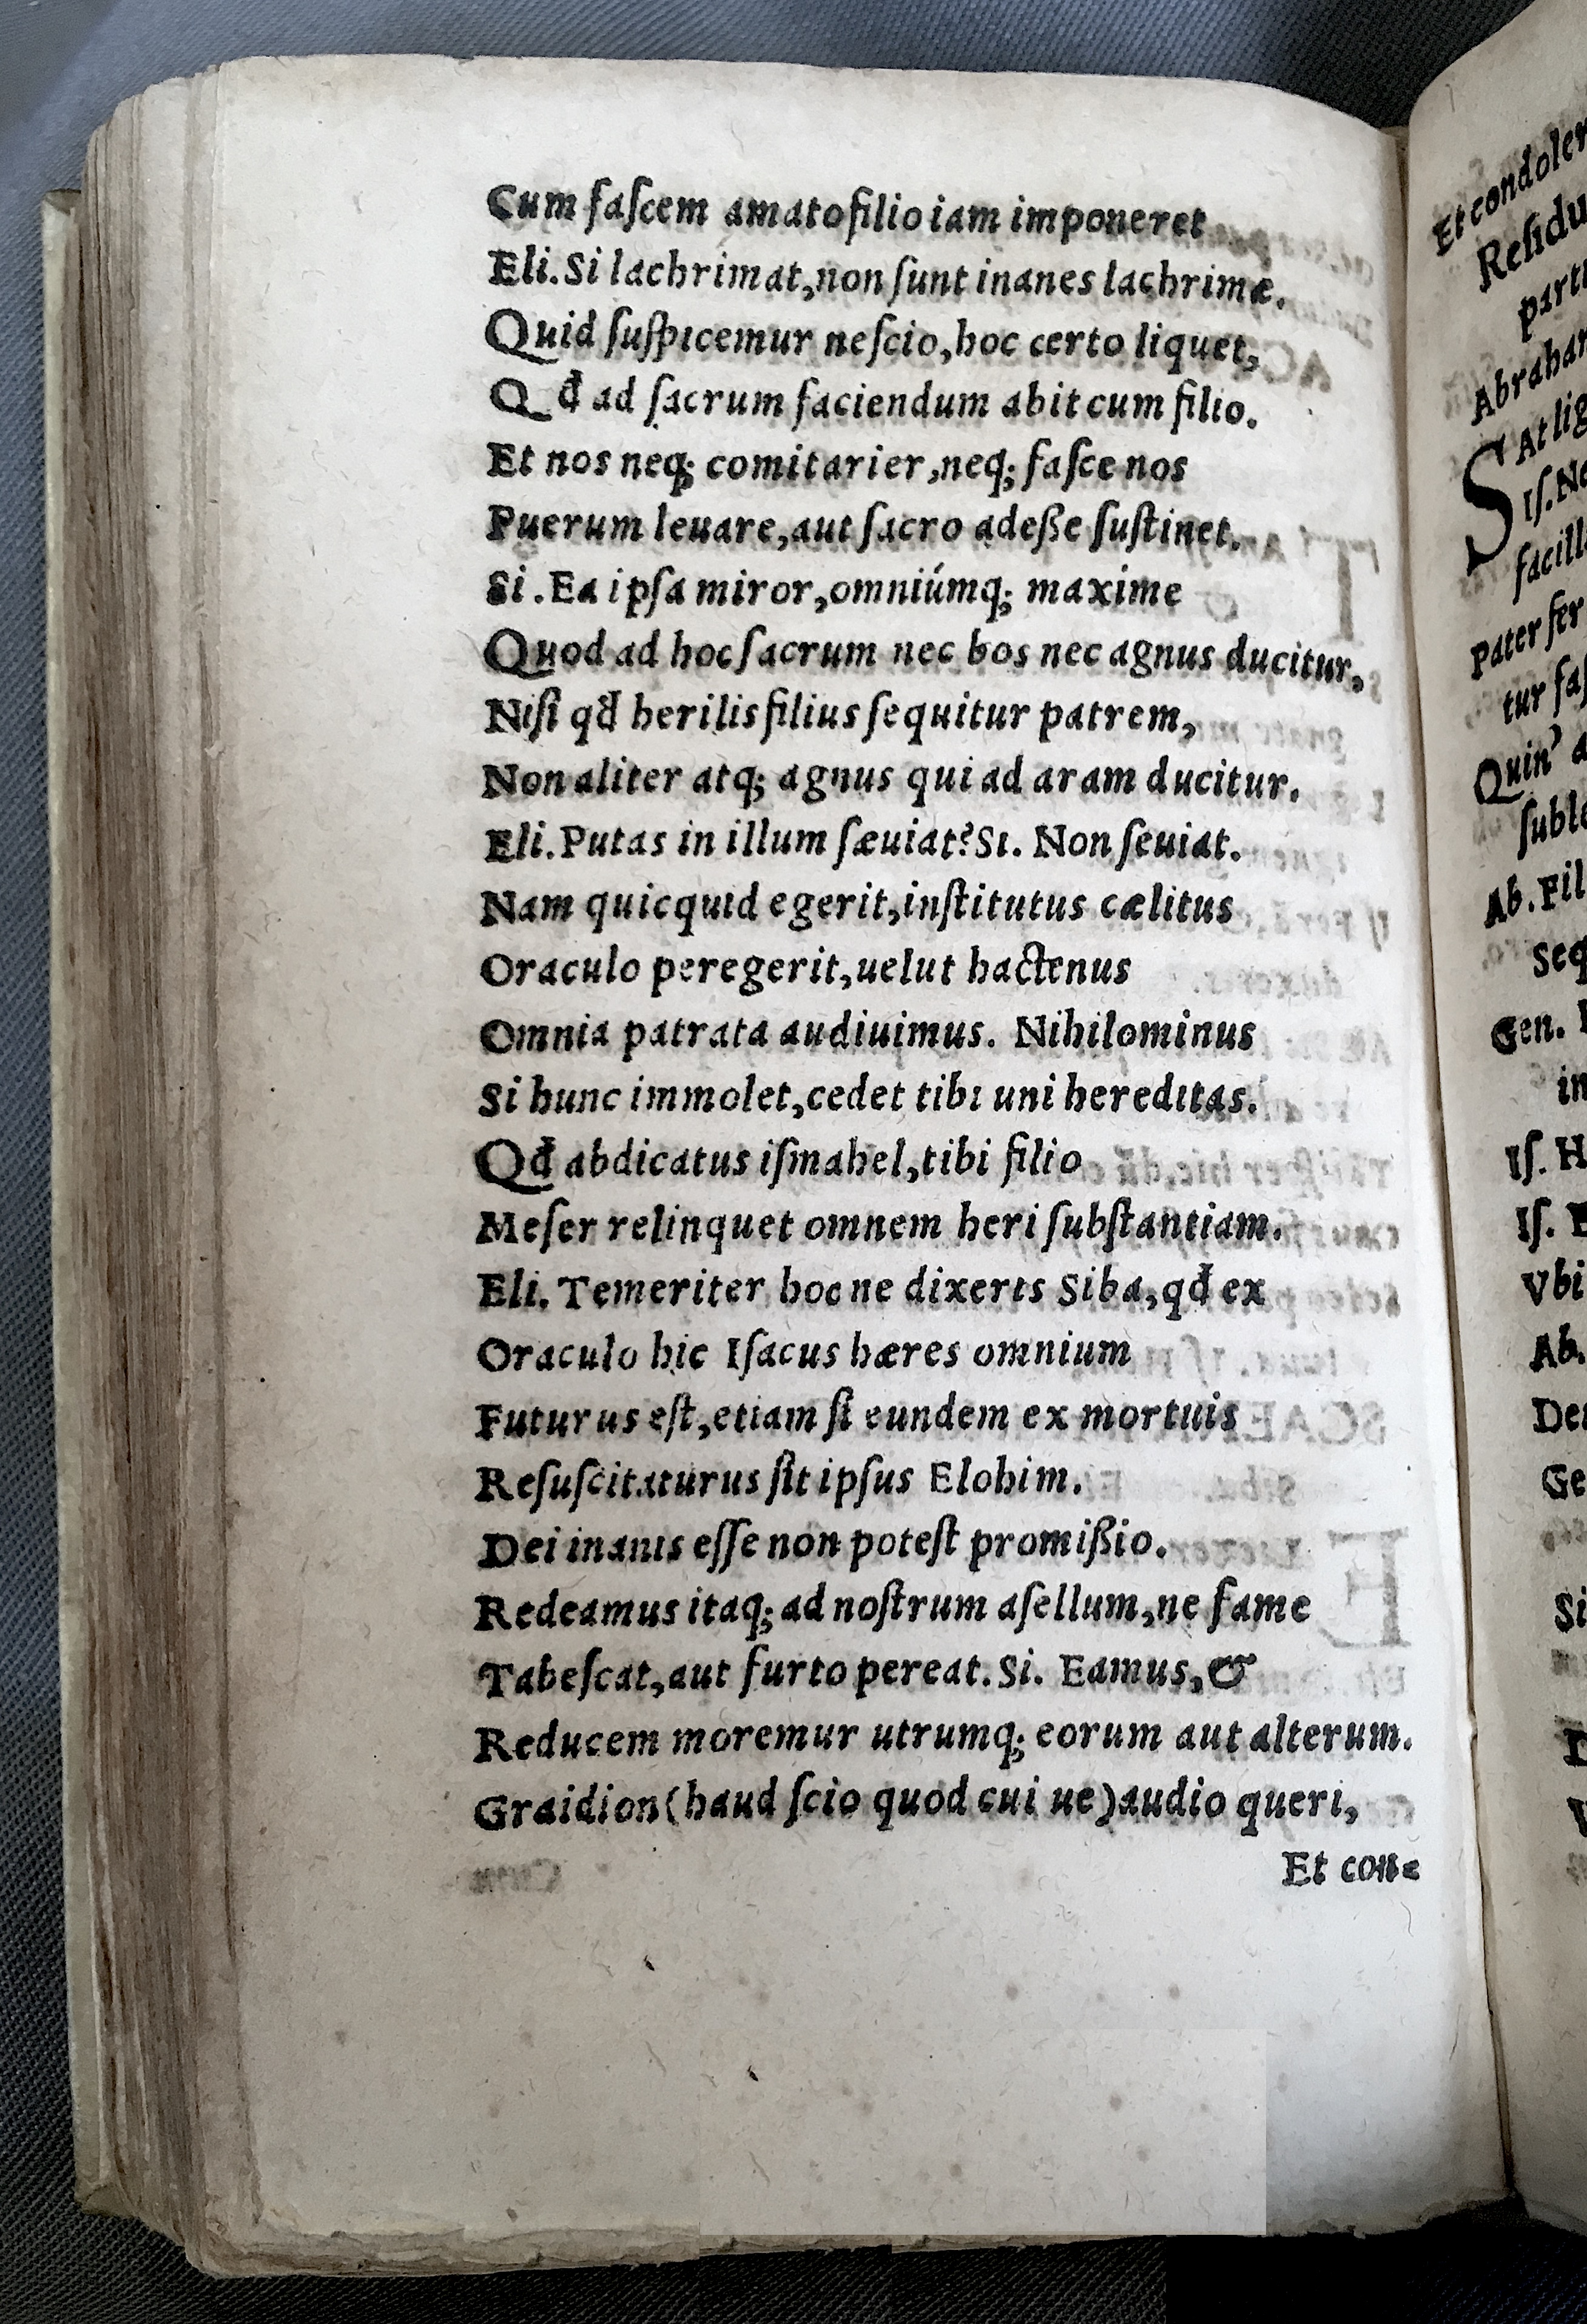 Cum faſcem amato filio iam imponeret
Eli. Si lachrimat, non ſunt inanes lachrimæ.
Quid ſuſpicemur neſcio, hoc certo liquet,
Qđ ad ſacrum faciendum abit cum filio.
Et nos neq; comitarier, neq; faſce nos
Puerum leuare, aut ſacro adeße ſuſtinet.
Si. Ea ipſa miror, omniúmq; maxime
Quod ad hoc ſacrum nec bos nec agnus ducitur,
Niſi qđ herilis filius ſequitur patrem,
Non aliter atq; agnus qui ad aram ducitur.
Eli. Putas in illum ſæuiat? Si. Non ſeuiat.
Nam quicquid egerit, inſtitutus cælitus
Oraculo peregerit, uelut hactenus
Omnia patrata audiuimus. Nihilominus
Si hunc immolet, cedet tibi uni hereditas.
Qđ abdicatus iſmahel, tibi filio
Meſer relinquet omnem heri ſubſtantiam.
Eli. Temeriter hoc ne dixeris Siba, qđ ex
Oraculo hic Iſacus hæres omnium
Futurus eſt, etiam ſi eundem ex mortuis
Reſuſcitaturus ſit ipſus Elohim.
Dei inanis eſſe non poteſt promißio.
Redeamus itaq; ad noſtrum aſellum, ne fame
Tabeſcat, aut furto pereat. Si. Eamus, &
Reducem moremur utrumq; eorum aut alterum.
Graidion (haud ſcio quod cui ue) audio queri,
Et con=
Et condoler
Reſidu
parti
Abraham
S At lig
Iſ. No
facill
Pater fer
tur faſ
Quin' a
ſubla
Ab. Fil
Seq
Gen.
in
Iſ. H
Iſ. E
Vbi
Ab.
De
Ge
Si